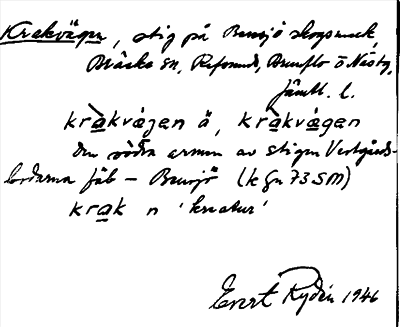 Krakvägen, stig på Bensjö skogsmark
Bräcke sn, Refsunds, Brunflo o Näsk,
Jämtl. l.
kràkvägen ä, kràkvágen
den södra armen av stigen Vestgårds-
bodarna fäb – Bensjö (k gn 73 SM)
krak n 'kreatur'
Evert Rydén 1946